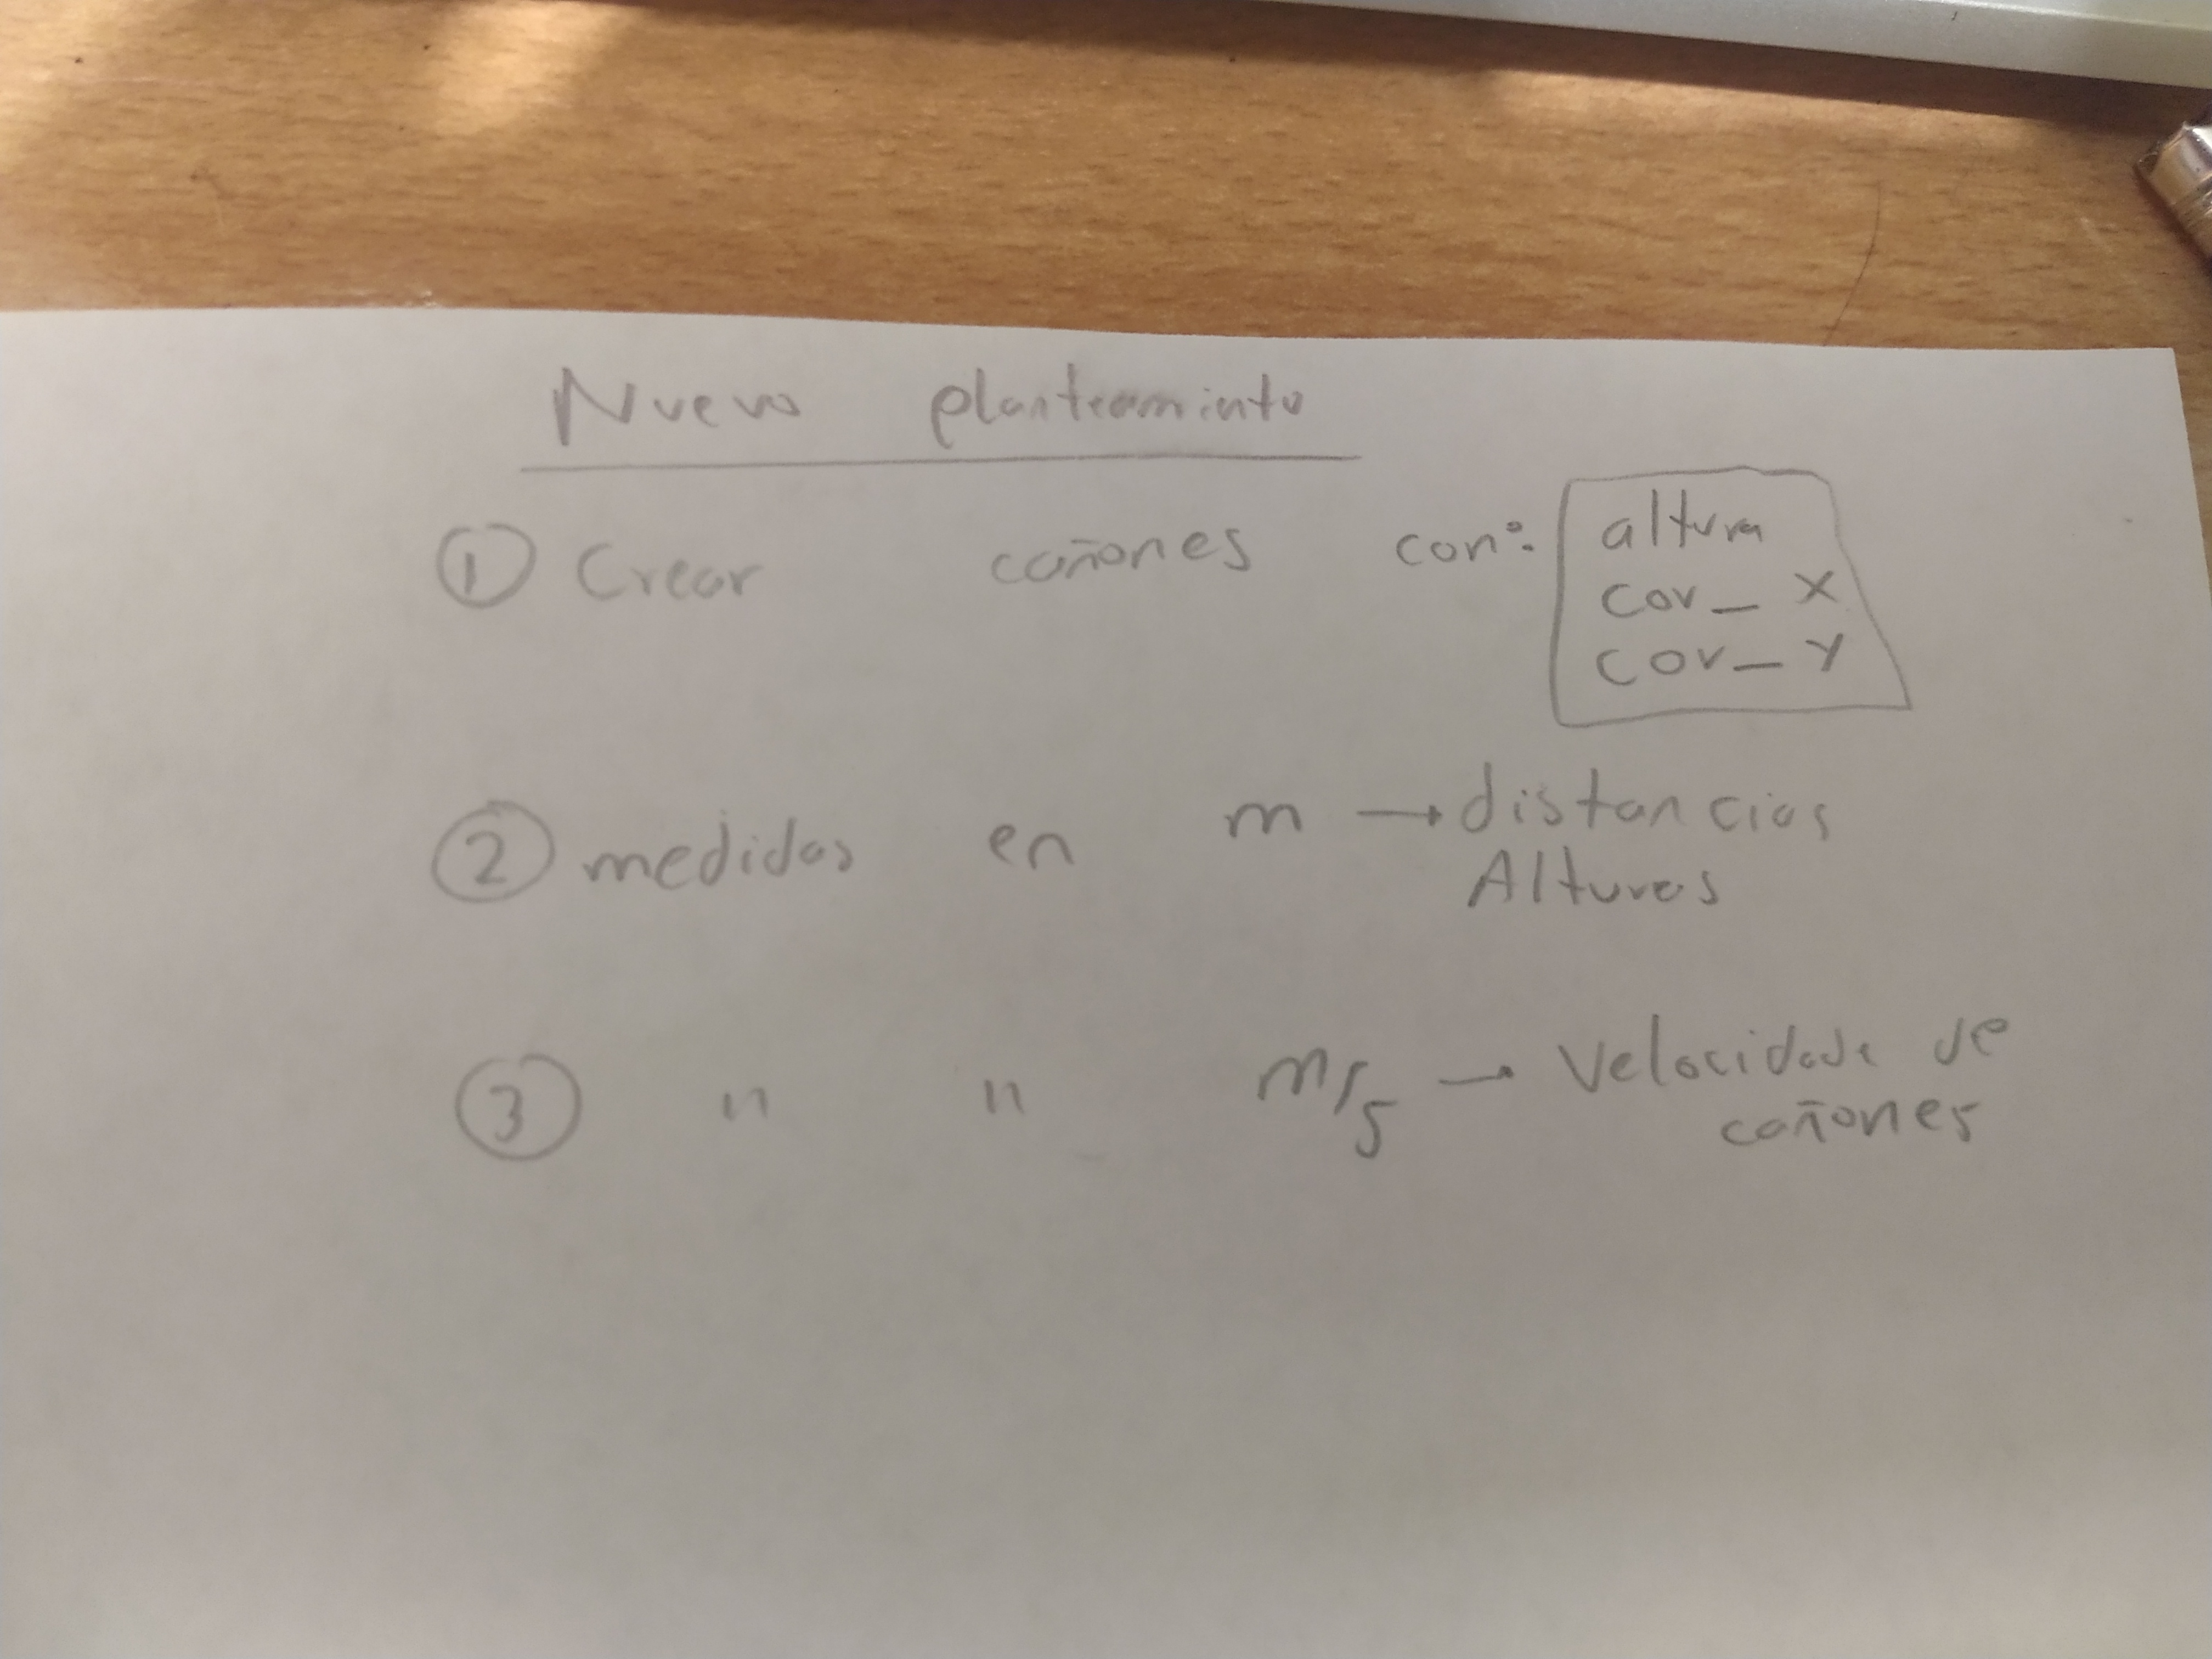 Nuevo planteaminto
① Crear cañones con: altura
cor_ X
cor_ Y
② medidas en m → distancias
Alturas
③ " " m/s → Velocidade de
cañones